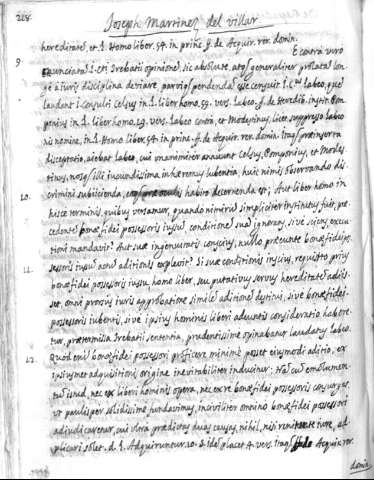 218.
Joseph Martinez del villar
hereditate, et l. Homo liber. 54. in princ. ff. de Acquir. rer. domin.
E contra vero
9 enunciata I.cti Trebatii opinione, sic absolute, atque generaliter prolata lon
ge a iuris disciplina deviare, parvique pendenda esse censuit I.Ctus Labeo, que
laudant I. consulti Celsus in l. liber homo, 59. vers. Labeo. ff. de Heredib. instit. Pom
ponius in l. liber homo, 59. vers. Labeo contra, et Modestinus, licet suppresso Labeo
nis nomine, in l. Homo liber. 54. in princ. ff. de Acquir. rer. domin.
disceptatio, aiebat Labeo, cui unanimiter annuunt Celsus, Pomponius, et Modes
tinus, in hac re mens lubentia, huic nimis observando dis
crimini subiicienda, habito decernenda est; Aut liber homo in
10. hisce terminis, quibus versamur, quando nimirum simpliciter institutus fuit, prae
cedenti bonae fidei possessoris iussu conditione sua ignorans, sive iussus execu
tioni mandavit? Aut suae ingenuitatis conscius, nullo praeeunte bonae fidei pos
sessoris iussu aditionis explevit? Si suae conditionis inscius, requisito prius
11. bonae fidei possessoris iussu homo liber, seu putativus servus hereditatem adiis
set, omni prorsus iuris approbatione simile aditione destitui, sive bonae fidei
possessoris iubentis, sive ipsius hominis liberi adeuntis consideratio habere
tur, praetermissa Trebatii sententia, prudentissime opinabatur laudatus Labeo.
12. Quod enim bonae fidei possessori proficere minime posset eiusmodi aditio, ex
ipsius met adquisitioni origine inevitabiliter inducitur: Nam cum emolumen
tum istud, nec ex liberi hominis opera, nec ex re bonae fidei possessoris consurgat,
ut paulis per solidissime fundavimus, inciviliter omnino bonae fidei possessori
adiudicaretur, cui ultra praedictas duas causas, nihil, nisi renitente iure, ad
plicari solet. d. l. Adquiruntur. 10. §. Idem placet 4. vers. ff. de Acquir. rer.
domin.